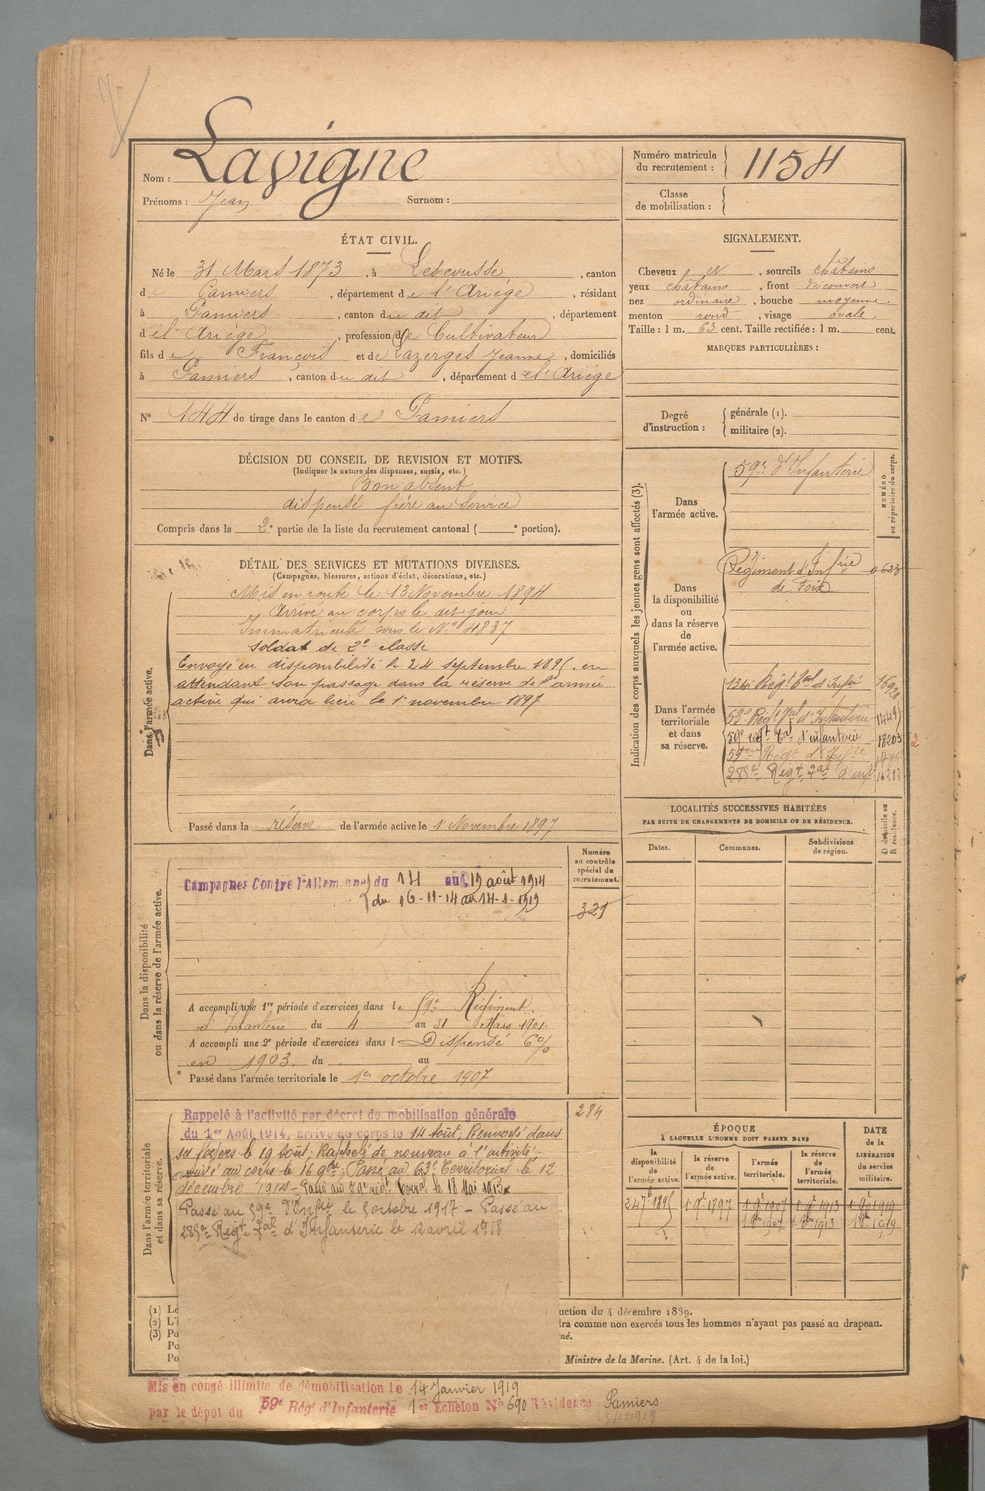 Nom : Lavigne
Prénoms : Jean Surnom :
Numéro matricule du recrutement : 1154
Classe de mobilisation :
ÉTAT CIVIL.
Né le 31 Mars 1873, à Lescousse, canton
de Pamiers, département de l'Ariège, résidant
à Pamiers, canton du dit, département
de l'Ariège, profession de Cultivateur
fils de François et de Lazerges Jeanne, domiciliés
à Pamiers, canton du dit, département de l'Ariège
N° 144 de tirage dans le canton de Pamiers
SIGNALEMENT.
Cheveux et, sourcils châtains
yeux châtains, front découvert
nez ordinaire, bouche moyenne
menton rond, visage ovale
Taille : 1 m. 63 cent. Taille rectifiée : 1 m. cent.
MARQUES PARTICULIÈRES :
Degré d'instruction : générale (1).
militaire (2).
DÉCISION DU CONSEIL DE REVISION ET MOTIFS.
(Indiquer la nature des dispenses, sursis, etc.)
Bon absent
dispensé frère au service
Compris dans la 2e partie de la liste du recrutement cantonal ( e portion).
DÉTAIL DES SERVICES ET MUTATIONS DIVERSES.
(Campagnes, blessures, actions d'éclat, décorations, etc.)
Dans l'armée active.
Mis en route le 13 Novembre 1894
Arrivé au corps le dit jour
Immatriculé sous le N° 4837
Soldat de 2e classe
Envoyé en disponibilité le 24 septembre 1895, en
attendant son passage dans la réserve de l'armée
active qui aura lieu le 1er novembre 1897
Passé dans la réserve de l'armée active le 1er Novembre 1897
Indication des corps auxquels les jeunes gens sont affectés (3).
NUMÉRO au répertoire du corps.
Dans l'armée active.
59e d'Infanterie
Dans la disponibilité ou dans la réserve de l'armée active.
Régiment d'Infrie
de Foix
Dans l'armée territoriale et dans sa réserve.
136e Régt Ter d'Infie
53e Régt Ter d'Infanterie
59e régt Tal d'infanterie 18203
59eme Régt d'Infie
285e Régt Tal d'Inf
LOCALITÉS SUCCESSIVES HABITÉES
PAR SUITE DE CHANGEMENTS DE DOMICILE OU DE RÉSIDENCE.
Dates. Communes. Subdivisions de région. D domicile ou R résidence.
Dans la disponibilité ou dans la réserve de l'armée active.
Numéro au contrôle spécial du recrutement.
Campagnes Contre l'Allemagne du 14 au 19 août 1914
du 16-11-14 au 14-1-1919
321
A accompli une 1re période d'exercices dans le 59e Régiment
d'Infanterie du 4 au 31 Mars 1901.
A accompli une 2e période d'exercices dans l Dispensé 6%
en 1903. du au
Passé dans l'armée territoriale le 1er octobre 1907
Dans l'armée territoriale et dans sa réserve.
284
Rappelé à l'activité par décret de mobilisation générale
du 1er Août 1914, arrivé au corps le 14 Août; Renvoyé dans
ses foyers le 19 Août; Rappelé de nouveau à l'activité,
arrivé au corps le 16 9bre; Passé au 63e Territorial le 12
décembre 1914 - Passé au 59e rég. Terral le 18 Mai 1915
Passé au 59e d'Infie le 5 octobre 1917 - Passé au
285e Régt Tal d'Infanterie le 12 avril 1918
ÉPOQUE
À LAQUELLE L'HOMME DOIT PASSER DANS
la disponibilité de l'armée active. la réserve de l'armée active. l'armée territoriale. la réserve de l'armée territoriale.
DATE de la LIBÉRATION du service militaire.
24 7bre 1895 1 9bre 1897 1 9bre 1907 1 9bre 1913 1 9bre 1919
1 8bre 1907 1 8bre 1913 1 8bre 1919
(1) Le
(2) L'i
(3) Po
Po
Po
uction du 4 décembre 1889.
tra comme non exercés tous les hommes n'ayant pas passé au drapeau.
né.
Ministre de la Marine. (Art. 4 de la loi.)
Mis en congé illimité de démobilisation le 14 Janvier 1919
par le dépôt du 59e Rég' d'Infanterie 1er Echelon N° 690 Résidence Pamiers